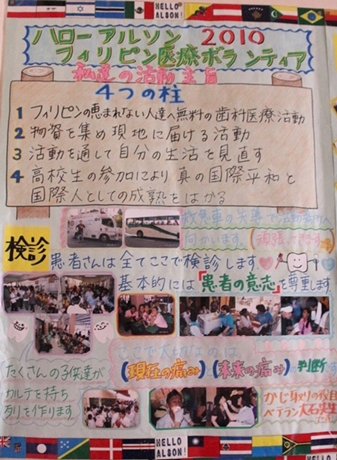 HELLO ALSON!
ハローアルソン 2010
フィリピン医療ボランティア
私達の活動主旨
4つの柱
1 フィリピンの恵まれない人達へ無料の歯科医療活動
2 物資を集め現地に届ける活動
3 活動を通して自分の生活を見直す
4 高校生の参加により真の国際平和と
国際人としての成熟をはかる
向かいます。
検診
患者さんは全てここで検診します
基本的には「患者の意志」を尊重します
(現在の痛み)(未来の痛み)判断
たくさんの子供達が
カルテを持ち
列を作ります
ベテラン大石先生
HELLO ALSON!
HELLO ALSON!